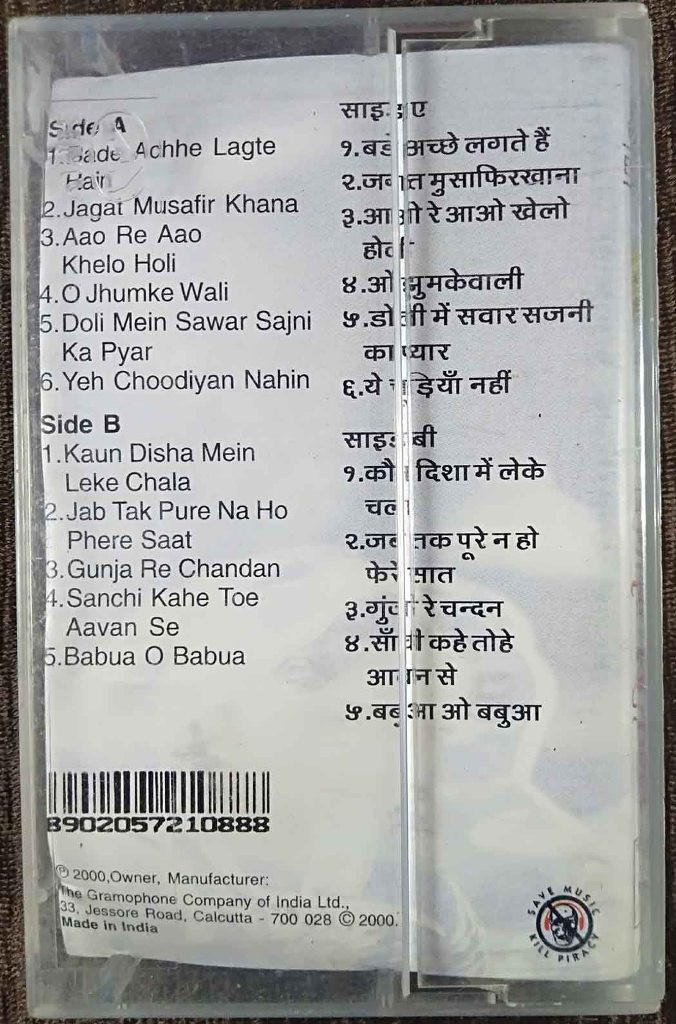 Side A
1.Bade Achhe Lagte
Hain
2.Jagat Musafir Khana
3.Aao Re Aao
Khelo Holi
4.O Jhumke Wali
5.Doli Mein Sawar Sajni
Ka Pyar
6.Yeh Choodiyan Nahin
Side B
1.Kaun Disha Mein
Leke Chala
2.Jab Tak Pure Na Ho
Phere Saat
3.Gunja Re Chandan
4.Sanchi Kahe Toe
Aavan Se
5.Babua O Babua
साइड ए
१.बडे अच्छे लगते हैं
२.जगत मुसाफिरखाना
३.आओ रे आओ खेलो
होली
४.ओ झुमकेवाली
५.डोली में सवार सजनी
का प्यार
६.ये चूड़ियाँ नहीं
साइड बी
१.कौन दिशा में लेके
चला
२.जब तक पूरे न हो
फेरे सात
३.गुंजा रे चन्दन
४.साँची कहे तोहे
आवन से
५.बबुआ ओ बबुआ
8902057210888
℗ 2000,Owner, Manufacturer:
The Gramophone Company of India Ltd.,
33, Jessore Road, Calcutta - 700 028 © 2000.
Made in India
SAVE MUSIC
KILL PIRACY